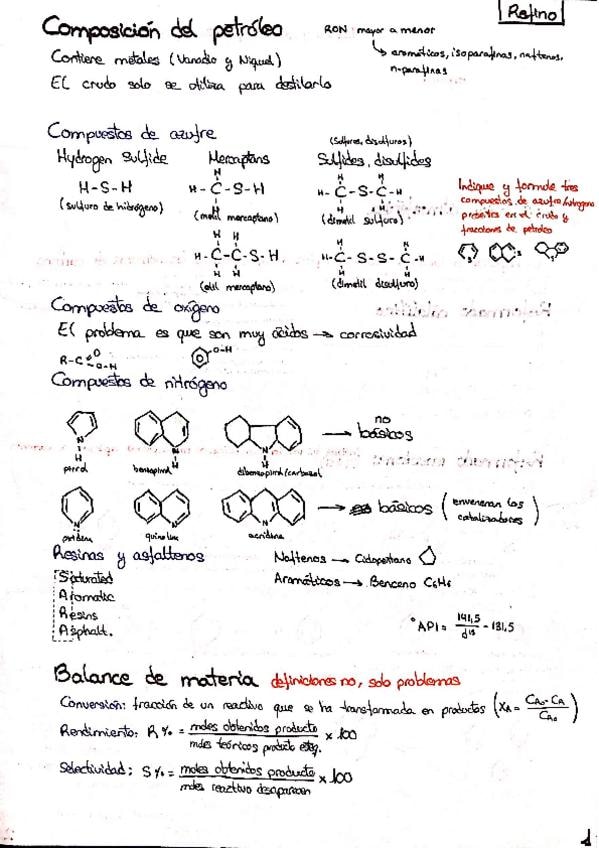 Refino
Composición del petróleo
RON mayor a menor
↳ aromáticos, isoparafinas, naftenos,
n-parafinas
Contiene metales (Vanadio y Niquel)
El crudo solo se utiliza para destilarlo
Compuestos de azufre
(Sulfuros, disulfuros)
Hydrogen Sulfide Mercaptans Sulfides, disulfides
H-S-H
(sulfuro de hidrógeno)
H
H-C-S-H
H
(metil mercaptano)
H H
H-C-S-C-H
H H
(dimetil sulfuro)
Indique y formule tres
compuestos de azufre/nitrogeno
presentes en el crudo y
fracciones de petroleo
S S S
H H
H-C-C-S-H
H H
(etil mercaptano)
H H
H-C-S-S-C-H
H H
(dimetil disulfuro)
Compuestos de oxígeno
El problema es que son muy ácidos → corrosividad
R-C=O
O-H
O-H
Compuestos de nitrógeno
N
H
pirrol
N
H
benzopirrol
N
H
dibenzopirrol/carbazol
→ no básicos
N
piridina
N
quinolina
N
acridina
→ básicos (envenenan los
catalizadores)
Resinas y asfaltenos
Saturated
Aromatic
Resins
Asphalt.
Naftenos → Ciclopentano
Aromáticos → Benceno C6H6
°API = 141,5 / d15 - 131,5
Balance de materia definiciones no, solo problemas
Conversión: fracción de un reactivo que se ha transformado en productos (XA = CAo - CA / CAo)
Rendimiento: R% = moles obtenidos producto / moles teóricos producto esteq. x 100
Selectividad: S% = moles obtenidos producto / moles reactivo desaparecen x 100
1